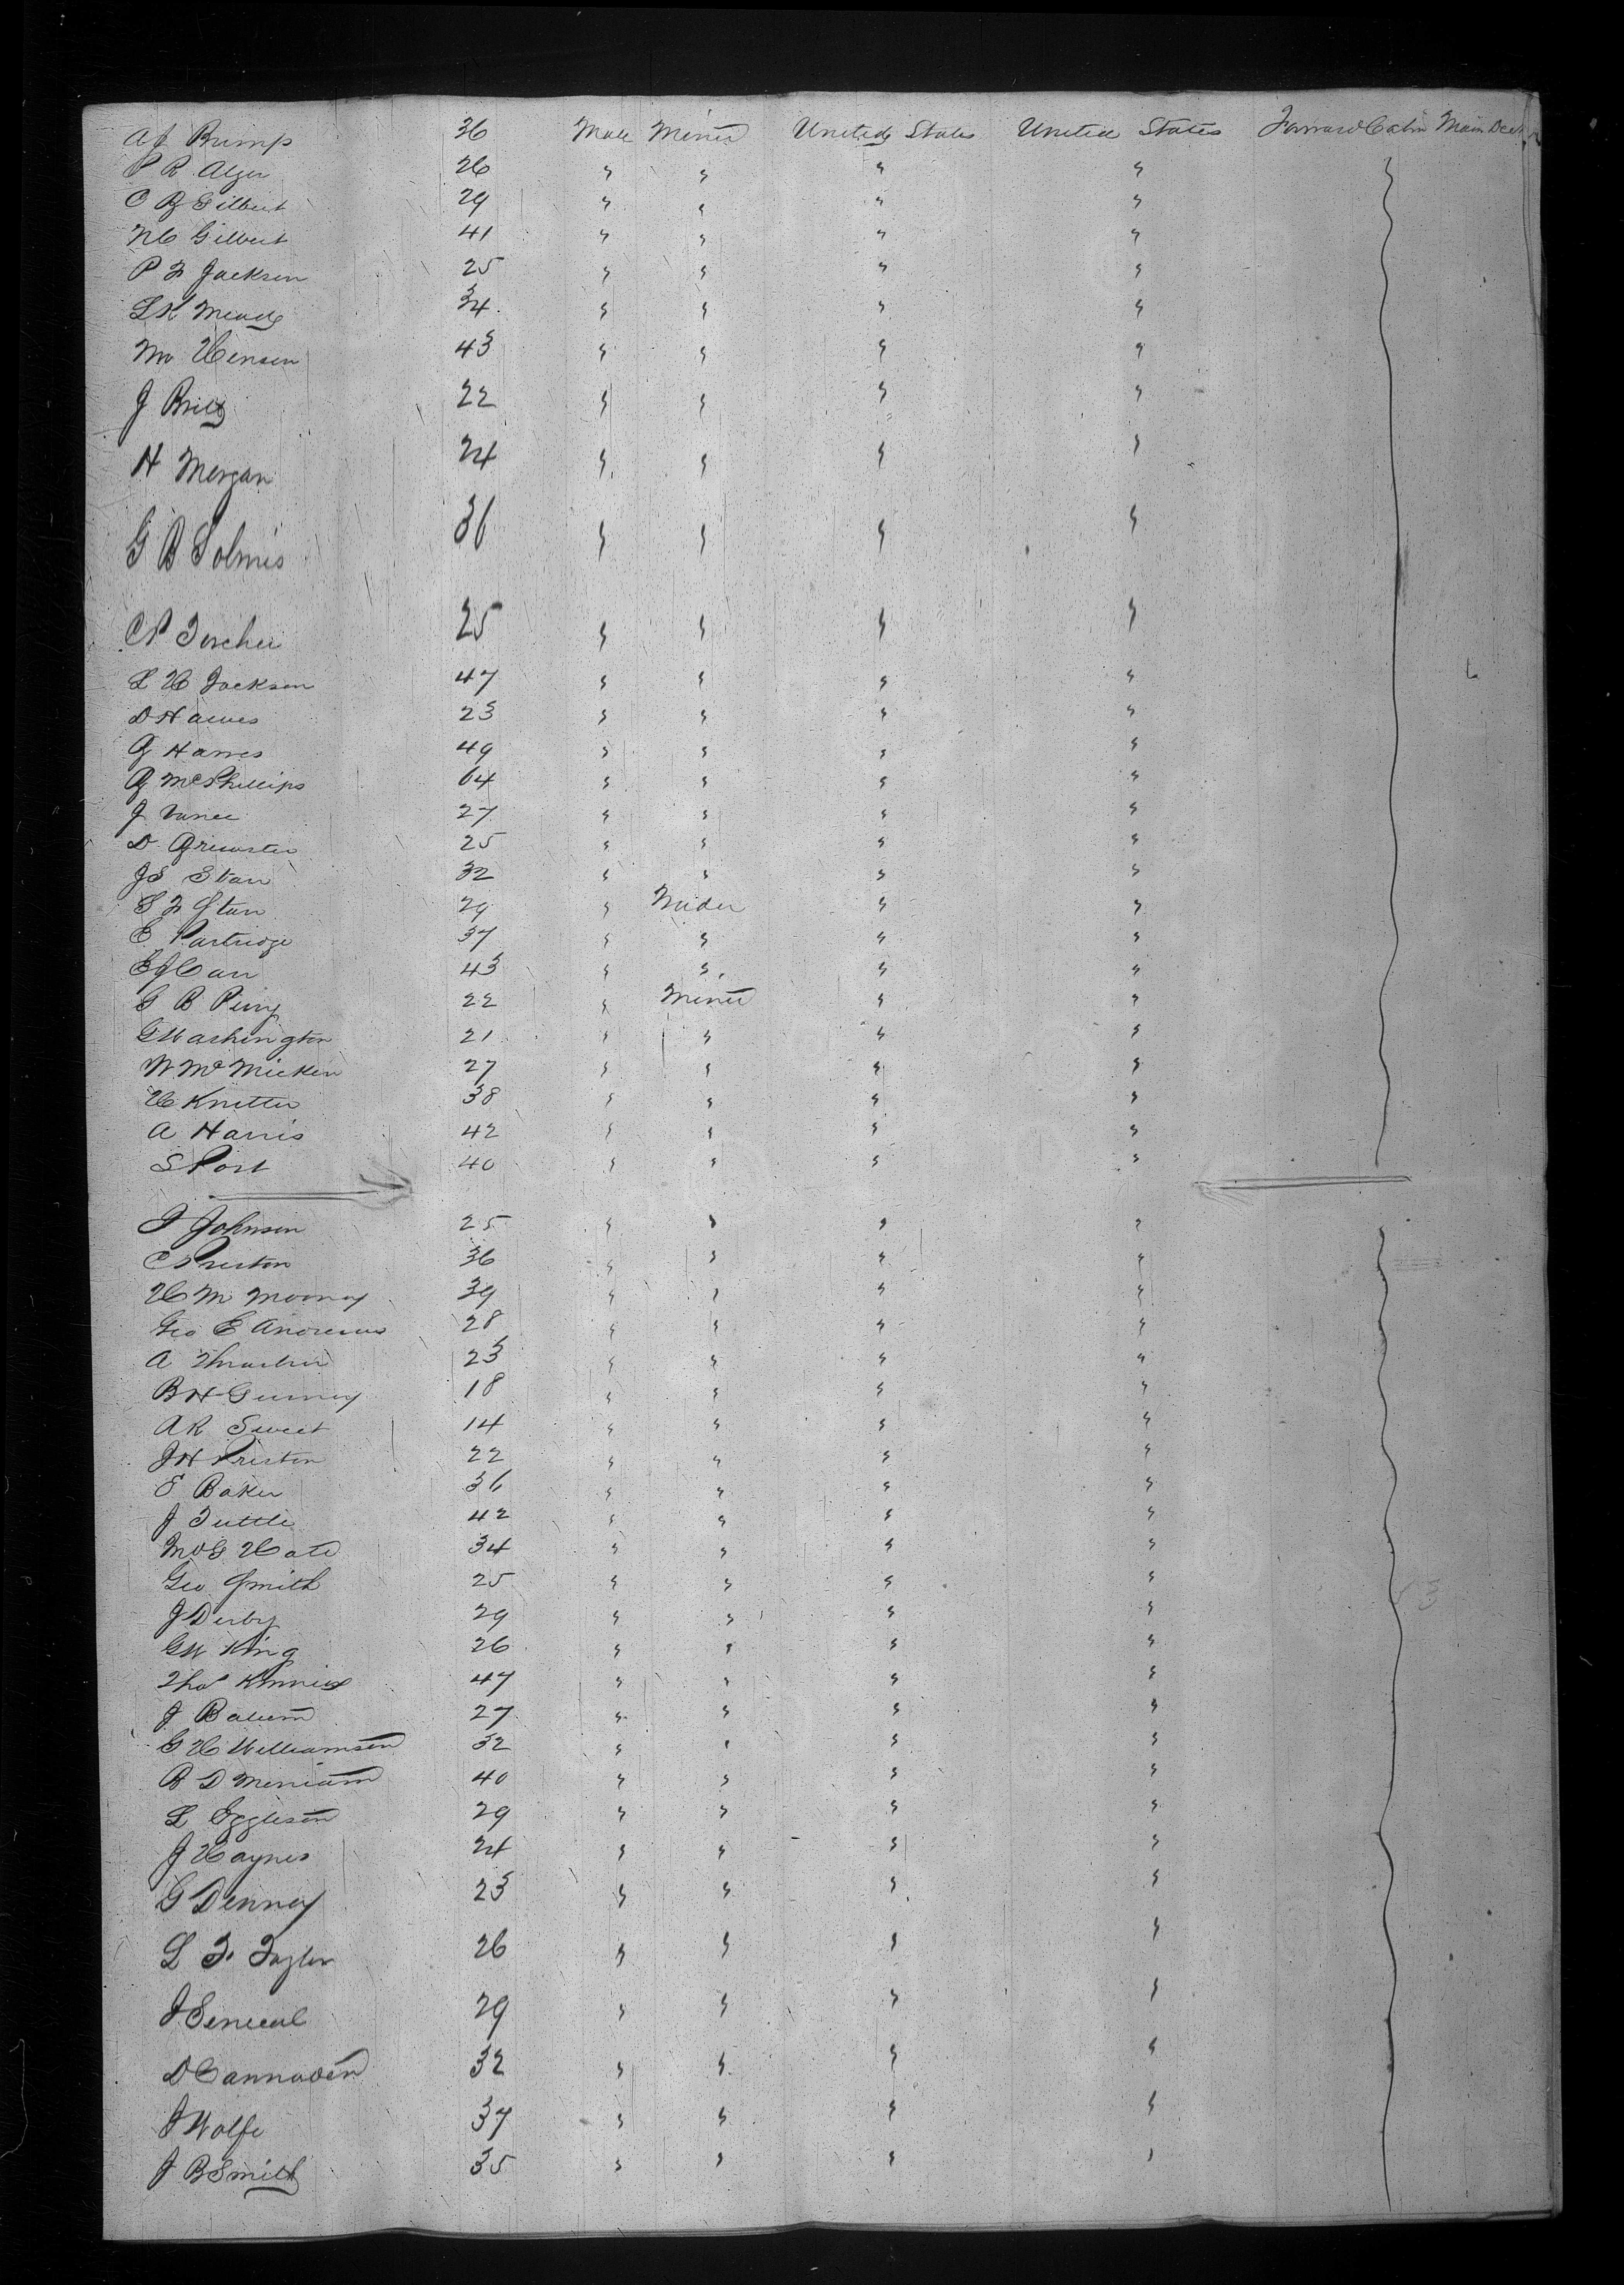 A J Bump 36 Male Miner United States United States Forward Cabin Main Deck
P R Alger 26 " " " "
C B Gilbert 29 " " " "
H C Gilbert 41 " " " "
P F Jackson 25 " " " "
L K Meady 34 " " " "
Henson 43 " " " "
J Brily 22 " " " "
H Morgan 24 " " " "
G B Solmis 36 " " " "
C P 25 " " " "
L H Jackson 47 " " " "
D Hawes 23 " " " "
49 " " " "
McPhillips 64 " " " "
J Vance 27 " " " "
D 25 " " " "
J S Starr 32 " " " "
S F Starr 29 " Trader " "
E Partridge 37 " " " "
E J Carr 43 " " " "
G B Perry 22 " Miner " "
G Washington 21 " " " "
W McMicken 27 " " " "
H Knetter 38 " " " "
A Harris 42 " " " "
S Post 40 " " " "
J Johnson 25 " " " "
C Preston 36 " " " "
H M Mooney 39 " " " "
Geo E Andrews 28 " " " "
A Thrasher 23 " " " "
B H Gurney 18 " " " "
A R Sweet 14 " " " "
J H Preston 22 " " " "
E Baker 36 " " " "
J Tuttle 42 " " " "
34 " " " "
Geo Smith 25 " " " "
J Derby 29 " " " "
G W King 26 " " " "
Thos 47 " " " "
J 27 " " " "
G H Williamson 32 " " " "
B D Merriam 40 " " " "
L Eggleson 29 " " " "
J Haynes 24 " " " "
G Denney 23 " " " "
L F Taylor 26 " " " "
J Senecal 29 " " " "
D Cannaven 32 " " " "
J Wolfe 37 " " " "
J B Smith 35 " " " "